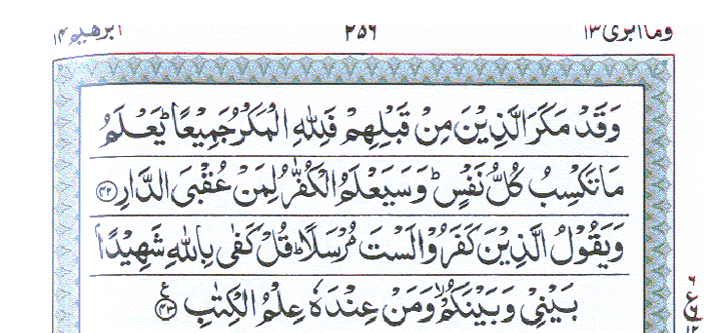 وما ابرئ ١٣ ٢٥٦ ابرهيم ١٤
وَقَدْ مَكَرَ الَّذِيْنَ مِنْ قَبْلِهِمْ فَلِلّٰهِ الْمَكْرُ جَمِيْعًا ؕ يَعْلَمُ
مَا تَكْسِبُ كُلُّ نَفْسٍ ؕ وَسَيَعْلَمُ الْكُفّٰرُ لِمَنْ عُقْبَى الدَّارِ ﴿٤٢﴾
وَيَقُوْلُ الَّذِيْنَ كَفَرُوْا لَسْتَ مُرْسَلًا ؕ قُلْ كَفٰى بِاللّٰهِ شَهِيْدًۢا
بَيْنِيْ وَبَيْنَكُمْ ۙ وَمَنْ عِنْدَهٗ عِلْمُ الْكِتٰبِ ﴿٤٣﴾ ع
٦
ع
١٢